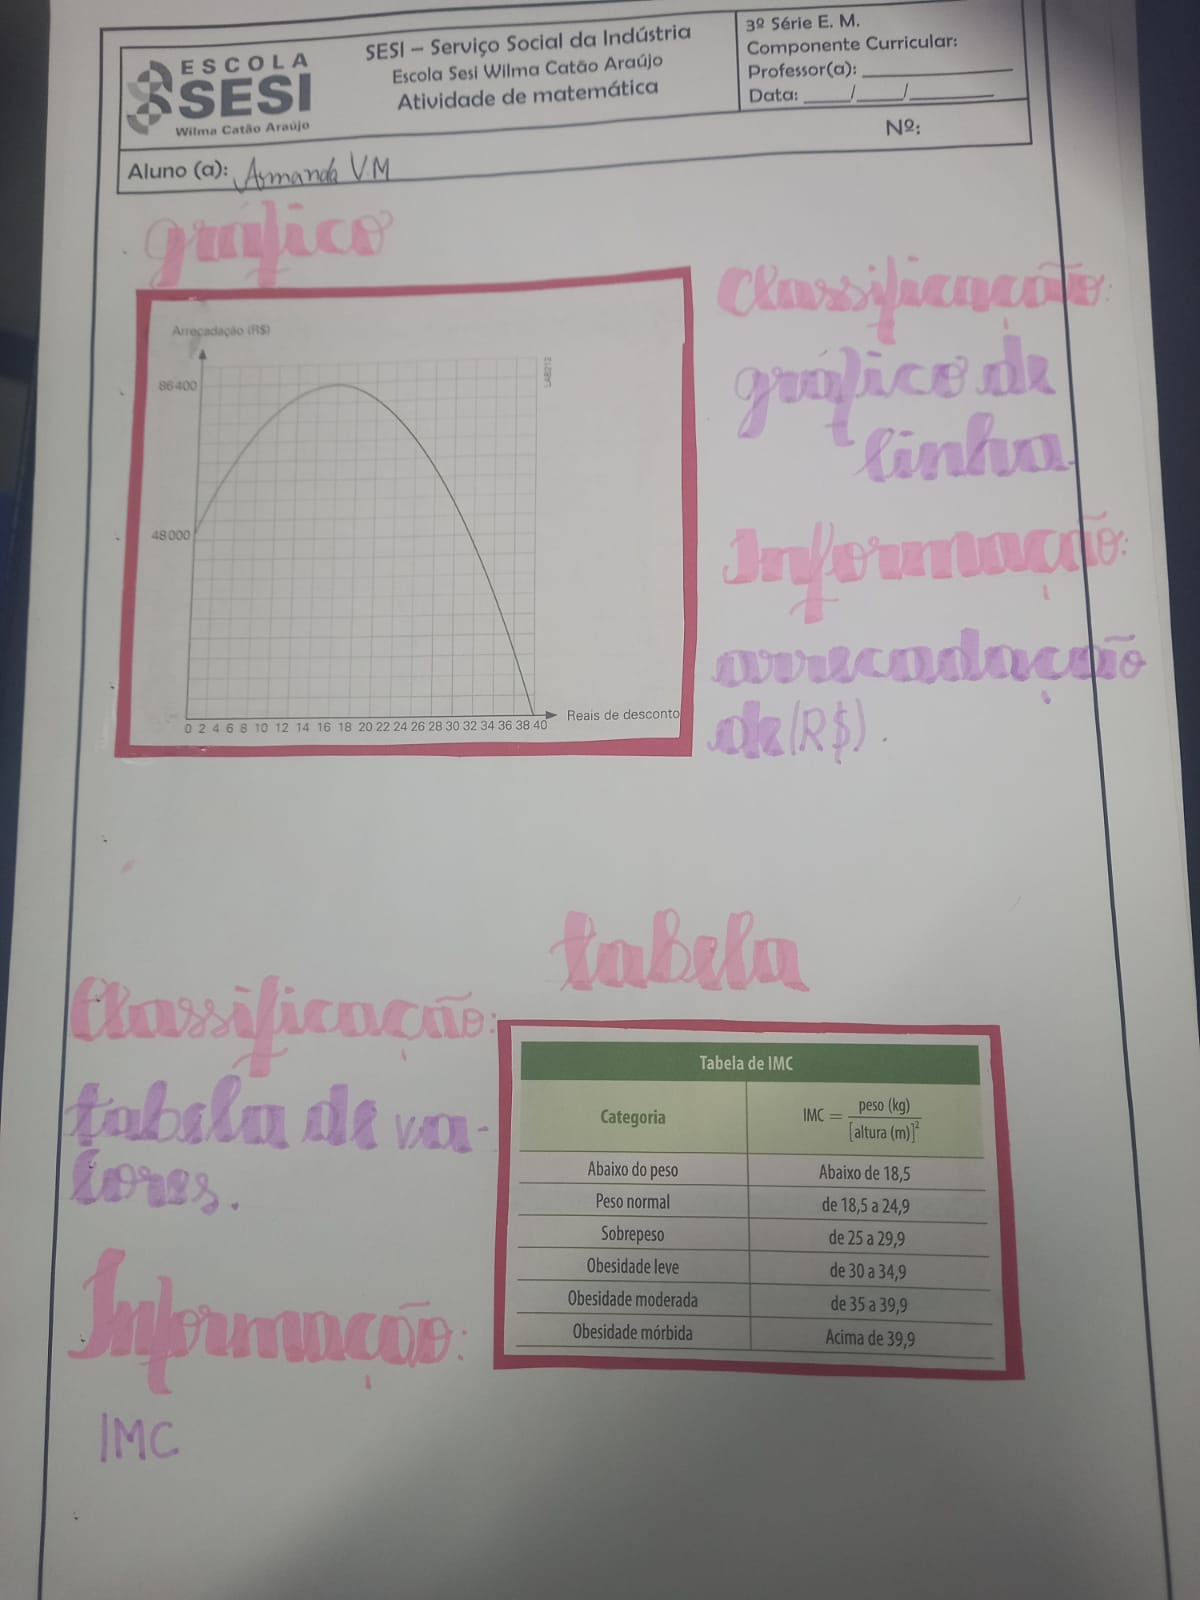 ESCOLA
SESI
Wilma Catão Araújo
SESI – Serviço Social da Indústria
Escola Sesi Wilma Catão Araújo
Atividade de matemática
3º Série E. M.
Componente Curricular:
Professor(a): ________________
Data: _____/_____/_________
Nº:
Aluno (a): Armanda V.M
gráfico
Arrecadação (R$)
86 400
48 000
LAB212
0 2 4 6 8 10 12 14 16 18 20 22 24 26 28 30 32 34 36 38 40
Reais de desconto
Classificação:
gráfico de
linha
Informação:
arrecadação
de (R$).
tabela
Classificação:
tabela de va-
lores.
Informação:
IMC
Tabela de IMC
Categoria
IMC = peso (kg)
[altura (m)]²
Abaixo do peso Abaixo de 18,5
Peso normal de 18,5 a 24,9
Sobrepeso de 25 a 29,9
Obesidade leve de 30 a 34,9
Obesidade moderada de 35 a 39,9
Obesidade mórbida Acima de 39,9